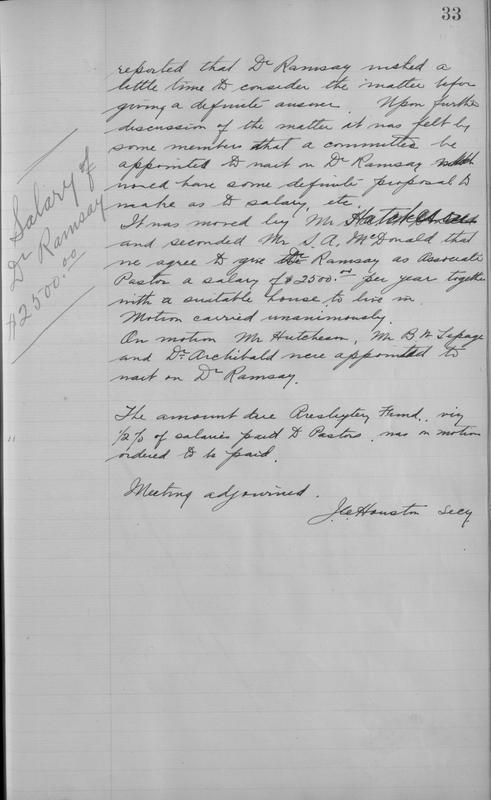 33
reported that Dr Ramsay wished a
little time to consider the matter before
giving a definite answer. Upon further
discussion of the matter it was felt by
some members that a committee be
appointed to wait on Dr Ramsay
would have some definite proposal to
make as to salary, etc.
It was moved by Mr
and seconded Mr S. A. McDonald that
we agree to give Dr Ramsay as Associate
Pastor a salary of $2500.00 per year together
with a suitable house to live in.
Motion carried unanimously.
On motion Mr Hutcheson, Mr B. W. Lepage
and Dr Archibald were appointed to
wait on Dr Ramsay.
The amount due Presbytery Fund, viz
1/2 % of salaries paid to Pastors, was on motion
ordered to be paid.
Meeting adjourned.
J. C. Houston Secy
Salary of
Dr Ramsay
$2500.00